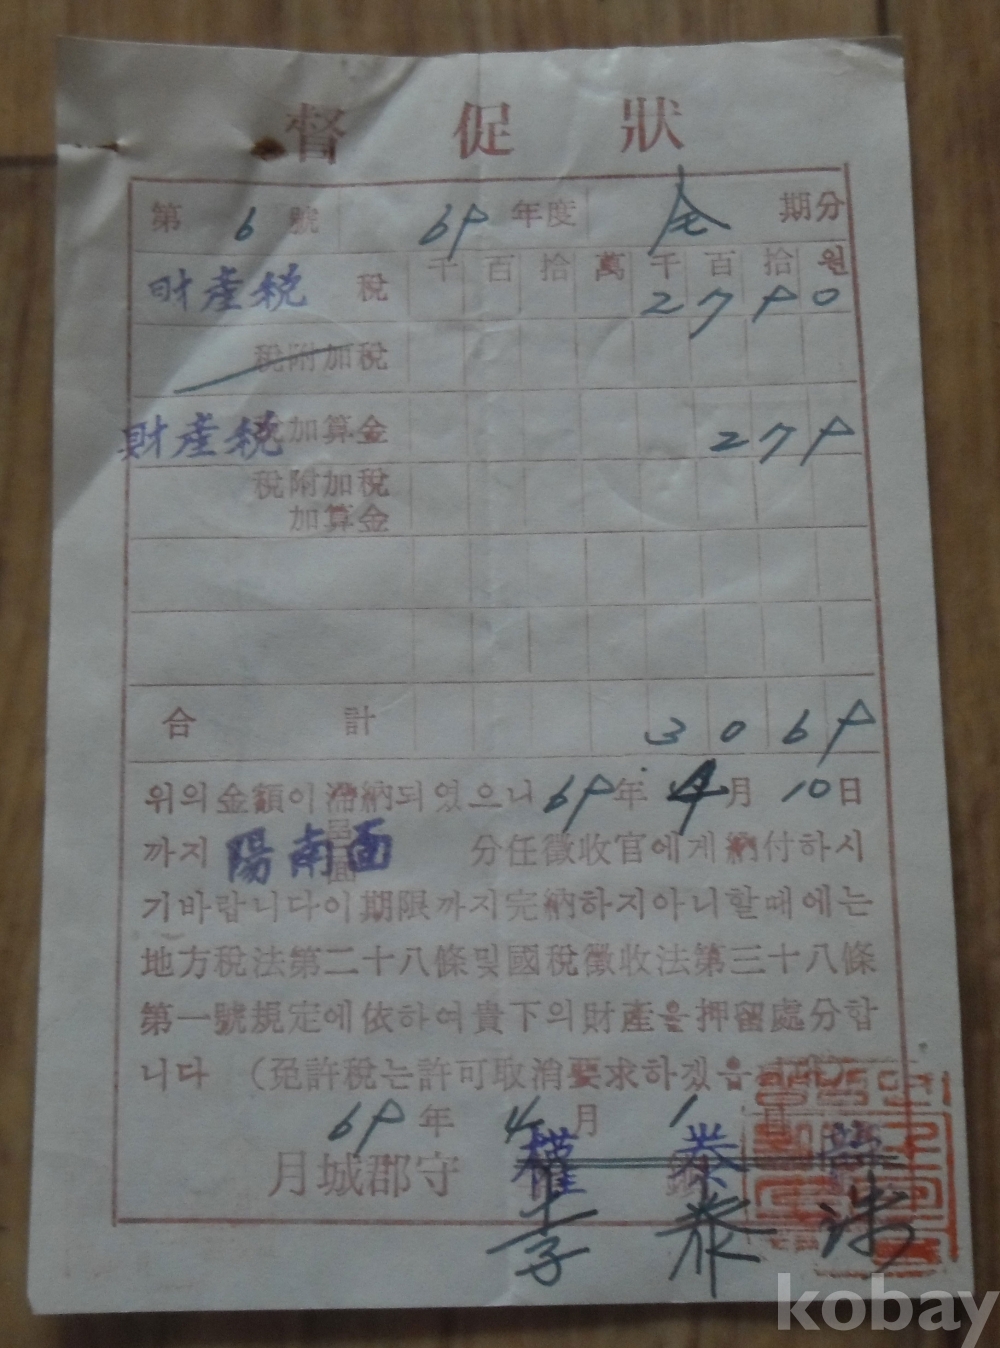 督促狀
第 6 號 69 年度 全 期分
千 百 拾 萬 千 百 拾 원
財産税 稅 2 7 9 0
稅附加稅
財産税 稅加算金 2 7 9
稅附加稅
加算金
合計 3 0 6 9
위의金額이滯納되였으니 69年 4月 10日
까지 陽南面 邑面 分任徵收官에게納付하시
기바랍니다이期限까지完納하지아니할때에는
地方稅法第二十八條및國稅徵收法第三十八條
第一號規定에依하여貴下의財產을押留處分합
니다 (免許稅는許可取消要求하겠음
69年 4月 1日
月城郡守 權 泰
李 泰 洙
kobay